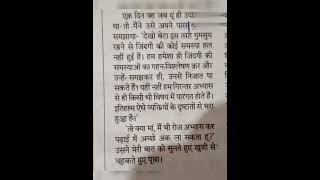 एक दिन वह जब यूं ही उदास
था-तो मैंने उसे अपने पास
समझाया- "देखो बेटा इस तरह गुमसुम
रहने से जिंदगी की कोई समस्या हल
नहीं हुई है। हम हमेशा ही जिंदगी की
समस्याओं का गहन-विश्लेषण कर और
उन्हें-समझकर ही, उनसे निजात पा
सकते हैं। यही नहीं हम निरन्तर अभ्यास
से ही किसी भी विषय में पारंगत होते हैं।
इतिहास ऐसे व्यक्तियों के दृष्टांतों से भरा
हुआ है।"
"तो क्या मां, मैं भी रोज अभ्यास कर
पढ़ाई में अच्छे अंक ला सकता हूं?"
उसने मेरी बात को सुनते हुए खुशी से
चहकते हुए पूछा।